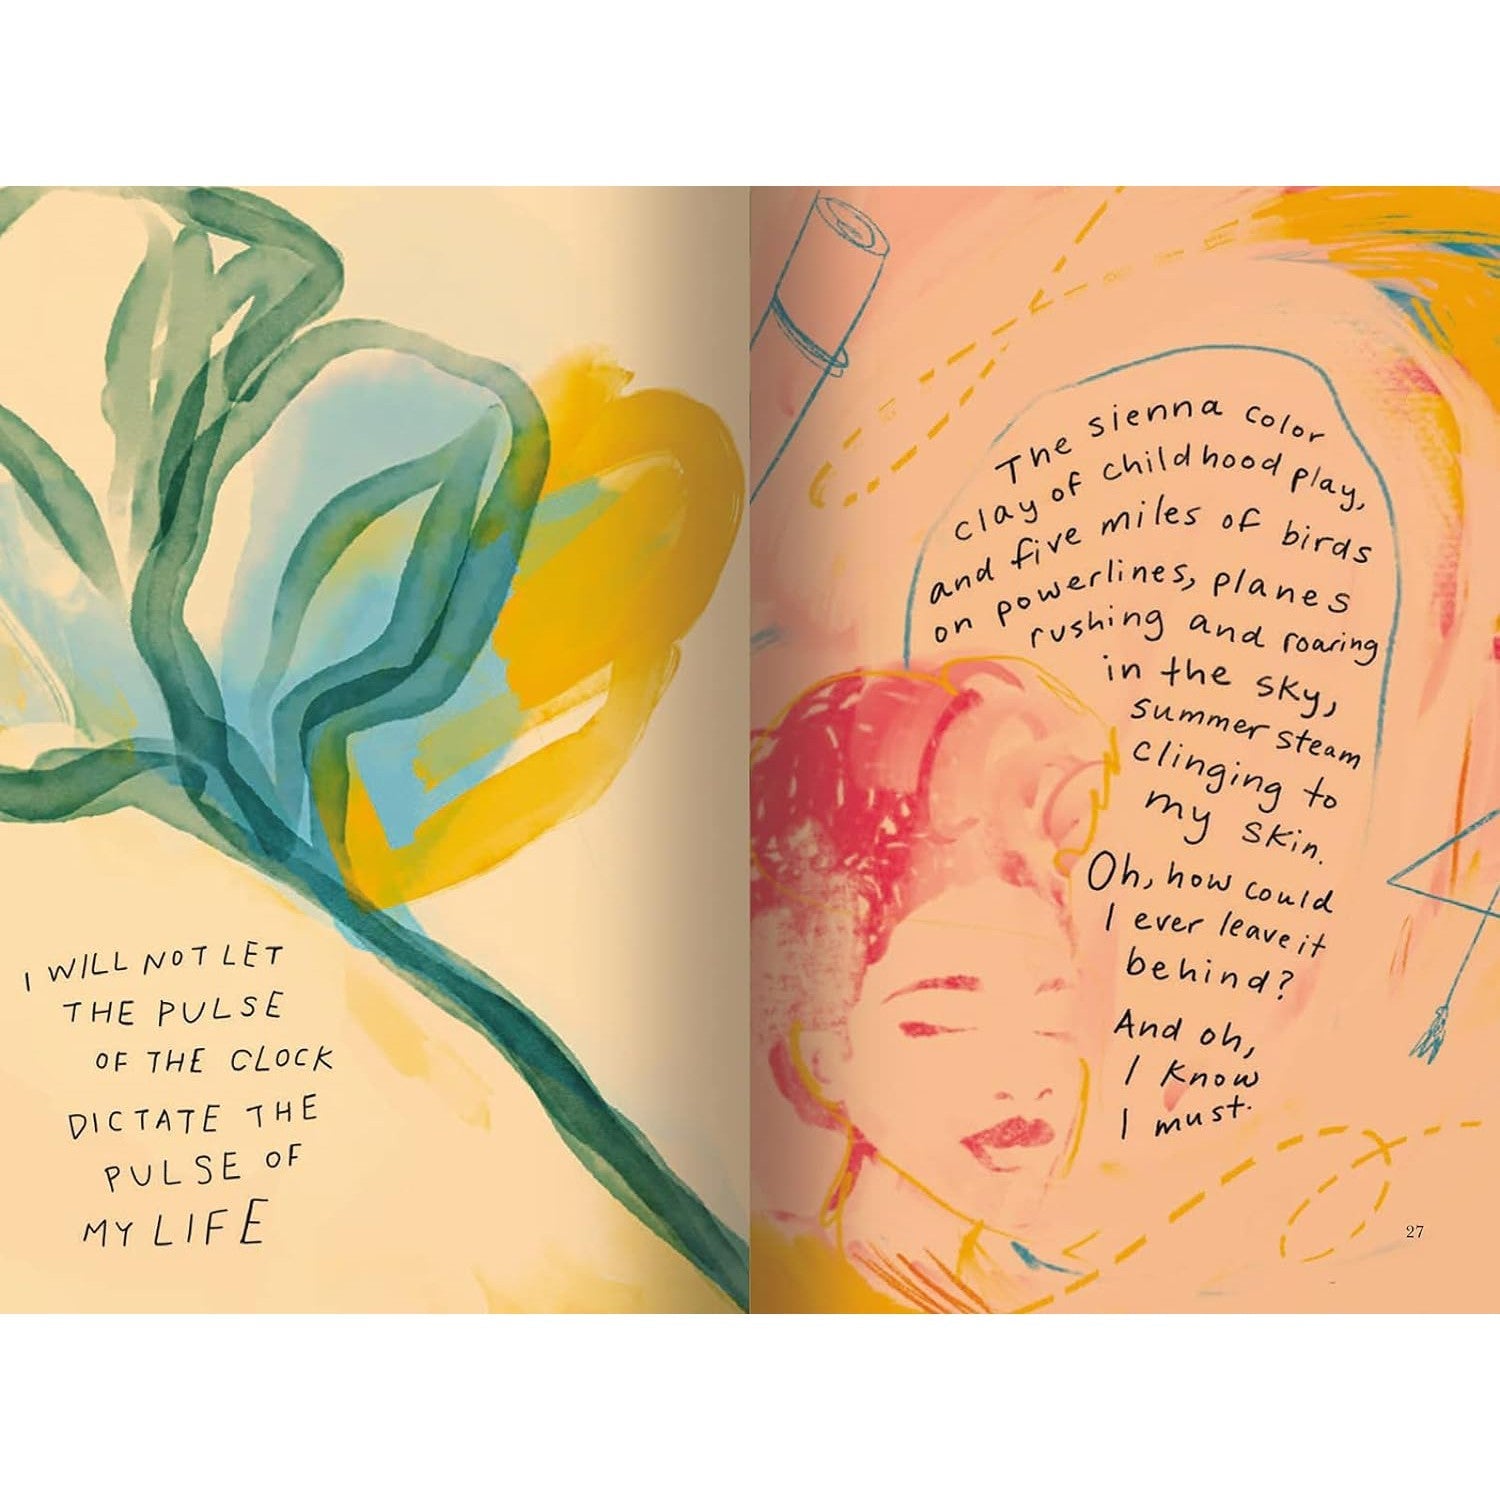 I WILL NOT LET
THE PULSE
OF THE CLOCK
DICTATE THE
PULSE OF
MY LIFE
The sienna color
clay of childhood play,
and five miles of birds
on powerlines, planes
rushing and roaring
in the sky,
summer steam
clinging to
my skin.
Oh, how could
I ever leave it
behind?
And oh,
I know
I must.
27